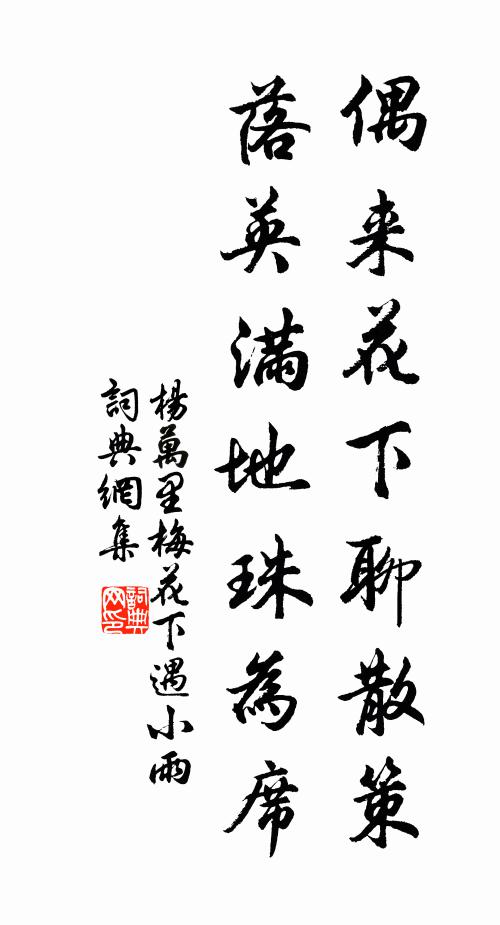 偶来花下聊散策
落英满地珠為席
楊萬里梅花下遇小雨
詞典網集
詞典网印